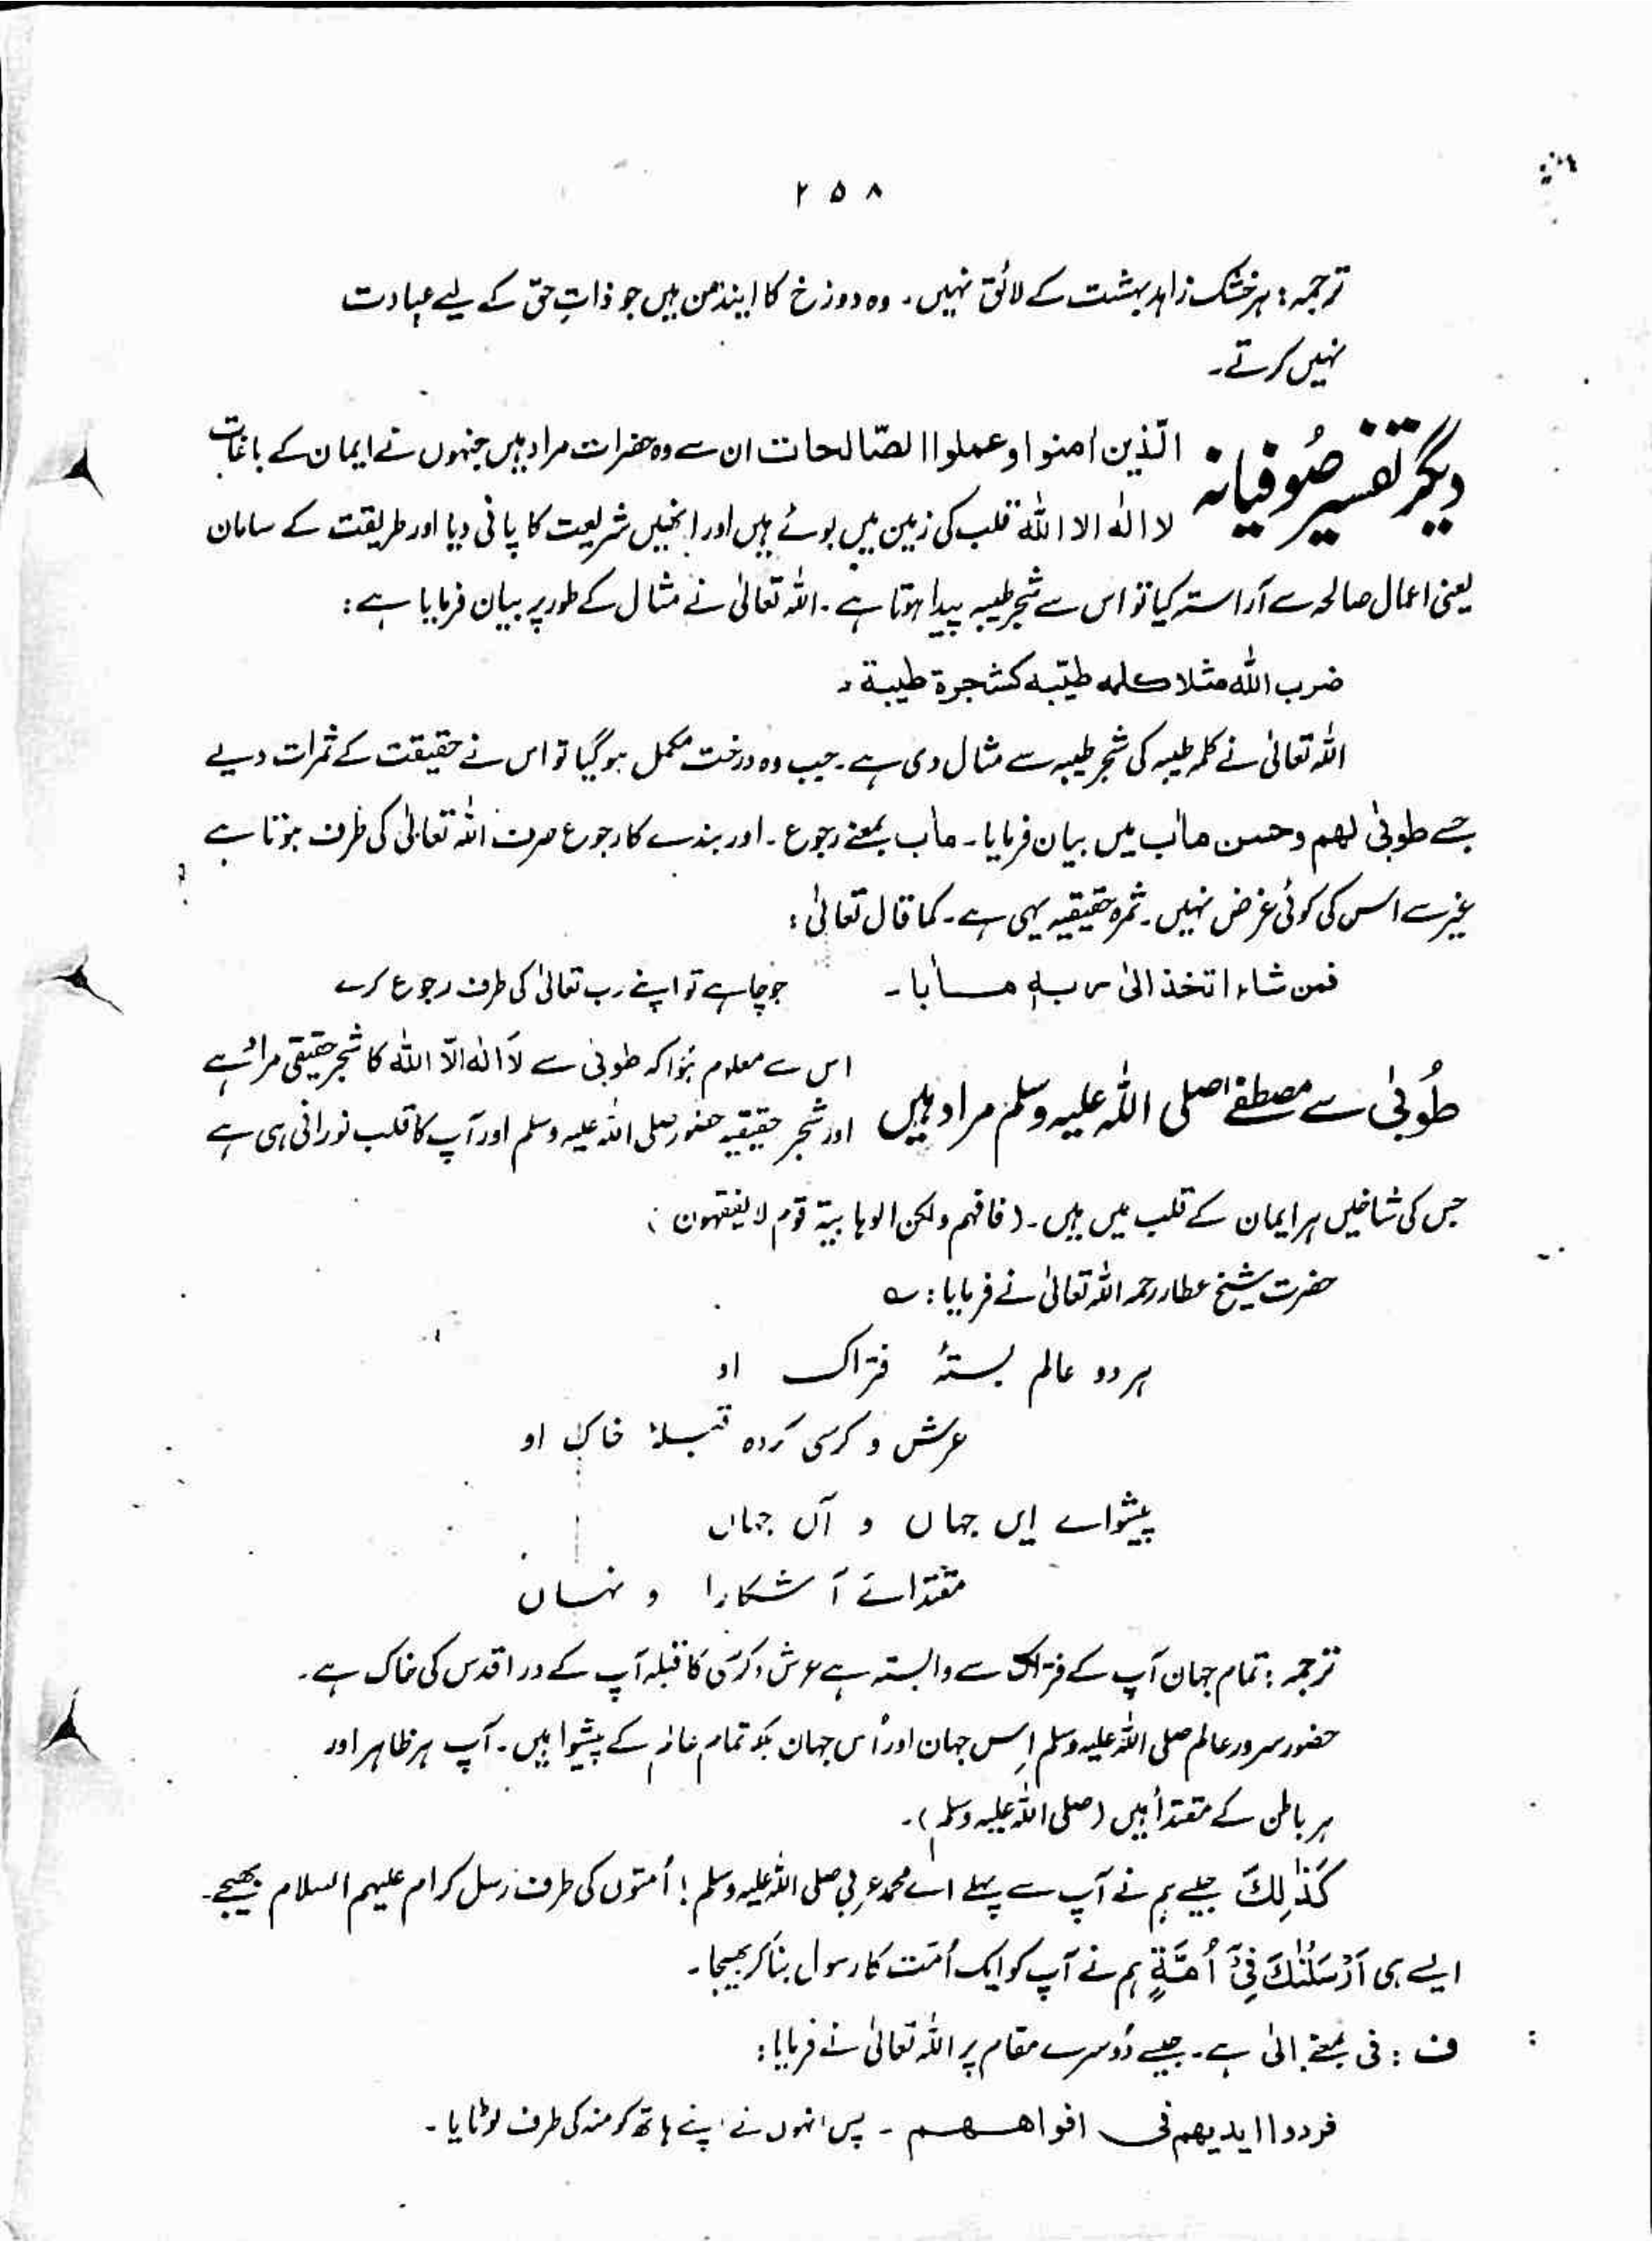 ۲۵۸
ترجمہ: ہر خشک زاہد بہشت کے لائق نہیں۔ وہ دوزخ کا ایندھن ہیں جو ذاتِ حق کے لیے عبادت
نہیں کرتے۔
دیگر تفسیر صُوفیانہ الّذین اٰمنوا وعملوا الصّالحات ان سے وہ حضرات مراد ہیں جنہوں نے ایمان کے باغات
لا الٰہ الا اللہ قلب کی زمین میں بوئے ہیں اور انھیں شریعت کا پانی دیا اور طریقت کے سامان
یعنی اعمال صالحہ سے آراستہ کیا تو اس سے شجر طیبہ پیدا ہوتا ہے۔ اللہ تعالیٰ نے مثال کے طور پر بیان فرمایا ہے:
ضرب اللہ مثلا کلمہ طیّبہ کشجرۃ طیبۃ۔
اللہ تعالیٰ نے کلمہ طیبہ کی شجر طیبہ سے مثال دی ہے۔ جب وہ درخت مکمل ہو گیا تو اس نے حقیقت کے ثمرات دیے
جسے طوبیٰ لھم وحسن ماٰب میں بیان فرمایا۔ ماٰب بمعنے رجوع۔ اور بندے کا رجوع صرف اللہ تعالیٰ کی طرف ہوتا ہے
غیر سے اس کی کوئی غرض نہیں۔ ثمرہ حقیقیہ یہی ہے۔ کما قال تعالیٰ:
فمن شاء اتخذ الیٰ ربہٖ مـاٰبا۔ جو چاہے تو اپنے رب تعالیٰ کی طرف رجوع کرے
طُوبیٰ سے مصطفےٰ صلی اللہ علیہ وسلم مراد ہیں اس سے معلوم ہُوا کہ طوبیٰ سے لَا الٰہ الّا اللہ کا شجر حقیقی مراد ہے
اور شجر حقیقیہ حضور صلی اللہ علیہ وسلم اور آپ کا قلب نورانی ہی ہے
جس کی شاخیں ہر ایمان کے قلب میں ہیں۔ (فافہم ولکن الوہابیۃ قوم لا یفقہون)
حضرت شیخ عطار رحمہ اللہ تعالیٰ نے فرمایا: ؎
ہر دو عالم بستۂ فتراک او
عرش و کرسی کردہ قبلۂ خاکِ او
پیشوائے ایں جہاں و آں جہاں
مقتدائے آشکارا و نہاں
ترجمہ: تمام جہان آپ کے فتراک سے وابستہ ہے عرش و کرسی کا قبلہ آپ کے در اقدس کی خاک ہے۔
حضور سرور عالم صلی اللہ علیہ وسلم اِس جہان اور اُس جہان بلکہ تمام عالم کے پیشوا ہیں۔ آپ ہر ظاہر اور
ہر باطن کے مقتدا ہیں (صلی اللہ علیہ وسلم)۔
کَذٰلِکَ جیسے ہم نے آپ سے پہلے اے محمد عربی صلی اللہ علیہ وسلم! اُمتوں کی طرف رسل کرام علیہم السلام بھیجے۔
ایسے ہی اَرْسَلْنٰکَ فِیْٓ اُمَّۃٍ ہم نے آپ کو ایک اُمت کا رسول بنا کر بھیجا۔
ف: فی بمعنے الیٰ ہے۔ جیسے دُوسرے مقام پر اللہ تعالیٰ نے فرمایا:
فردوا ایدیھم فی افواھھم۔ پس انہوں نے اپنے ہاتھ کو منہ کی طرف لوٹایا۔